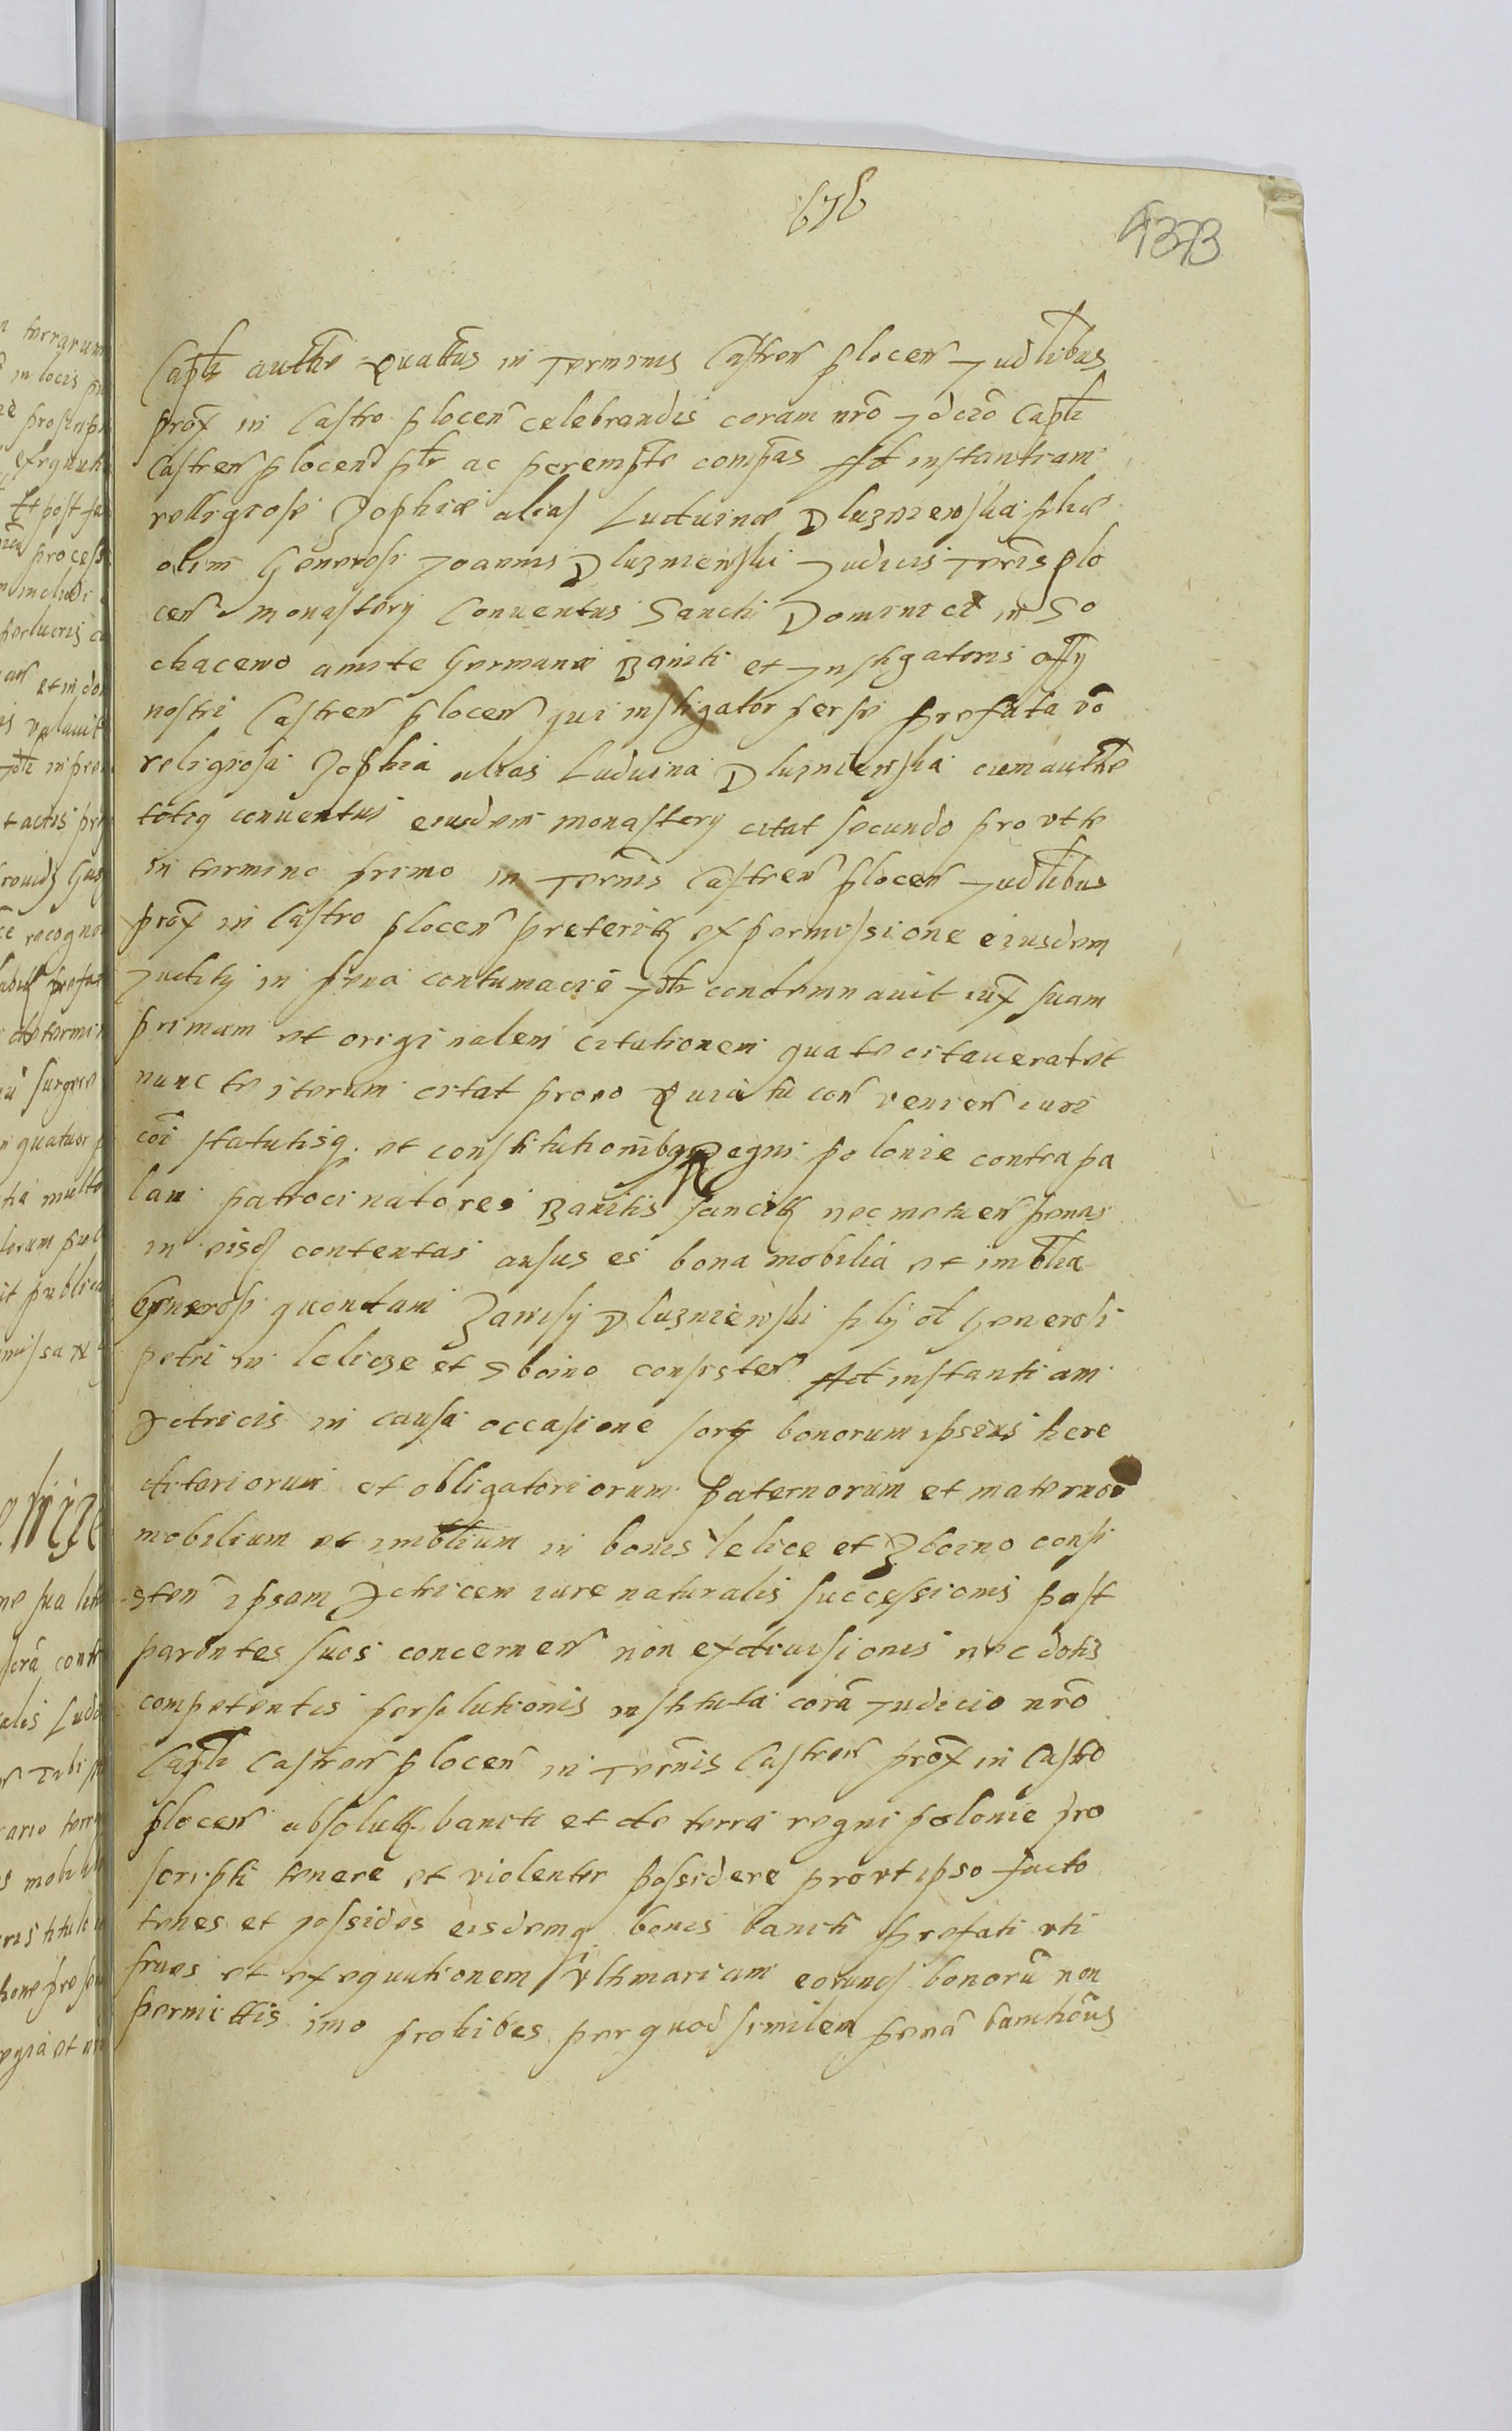 676
4373
Capli authe quattus in Terminis Castren plocen Judlibus
prox in Castro plocen celebrandis coram nro Jdcio Capli
Castren plocen plr ac perempte compas Ad instantiam
relligiose Zophiæ alias Luduinæ Dluzniewska filiæ
olim Generosi Joannis Dluzniewski Judicis Terris plo
cen monastery Conuentus Sancti Dominici in So
chaczewo amite Germanæ Baniti et Instigatoris offy
nostri Castren plocen qui instigator per se prefata vo
religiosa Zophia alias Luduina Dluzniewska cum authe
totiq conuentus eiusdem monastery citat secundo pro ut te
in termino primo in Termis Castren plocen Judlibus
prox in Castro plocen preteritis ex permissione eiusdem
Judicy in pena contumacie Jdlr condemnauit iux suam
primam et originalem citationem qua te citauerat et
nunc te iterum citat proeo Quia tu con venien iuri
coi statutisq et constitutionibq Regni polonie contra pa
lam patrocinatores Banitis sancitis nec metuen penas
in eisd contentas ausus es bona mobilia et imblia
Generosi quondam Zawisy Dluzniewski fily ol Generosi
petri in lelice et Sboino consisten Ad instantiam
Actricis in causa occasione sortis bonorum ipsius here
ditariorum et obligatoriorum paternorum et maternor
mobilium et imblium in bonis lelice et Zboino consi
sten ipsam Actricem iure naturalis successionis post
parentes suos concernen non exdiuisionis nec dotis
competentis persolutionis instituta corā Judicio nro
Capli Castren plocen in Termis Castren prox in Castro
plocen absolutis baniti et de terra regni polonie pro
scripti tenere et violenter possidere prout ipso facto
tenes et possides eisdemq bonis baniti prefati uti
frues et exequutionem vltimariam eorund bonorū non
permittis imo prohibes per quod similem penā banitionis